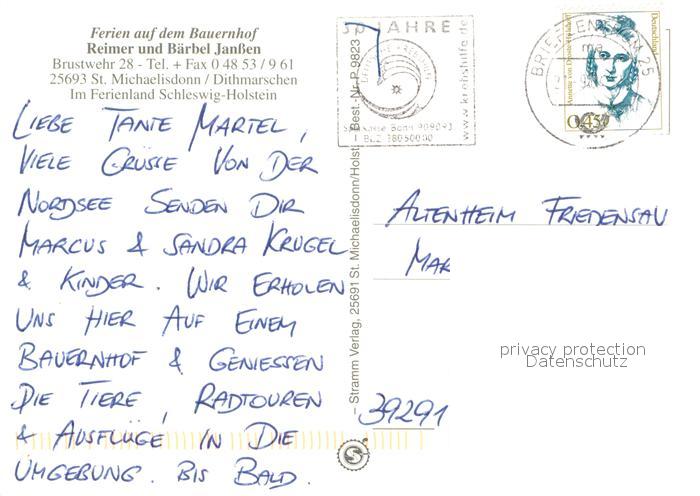 Ferien auf dem Bauernhof
Reimer und Bärbel Janßen
Brustwehr 28 - Tel. + Fax 0 48 53 / 9 61
25693 St. Michaelisdonn / Dithmarschen
Im Ferienland Schleswig-Holstein
LIEBE TANTE MARTEL,
VIELE GRÜSSE VON DER
NORDSEE SENDEN DIR
MARCUS & SANDRA KRÜGEL
& KINDER. WIR ERHOLEN
UNS HIER AUF EINEM
BAUERNHOF & GENIESSEN
DIE TIERE, RADTOUREN
& AUSFLÜGE IN DIE
UMGEBUNG. BIS BALD.
– Stramm Verlag, 25691 St. Michaelisdonn/Holst. – Best.-Nr. P 9823
JAHRE
DEUTSCHE KREBSHILFE
www.krebshilfe.de
Sparkasse Bonn 909093
BLZ 38050000
BRIEFZENTRUM 25
Deutschland
Annette von Droste-Hülshoff
0,45
ALTENHEIM FRIEDENSAU
MAR
39291
privacy protection
Datenschutz